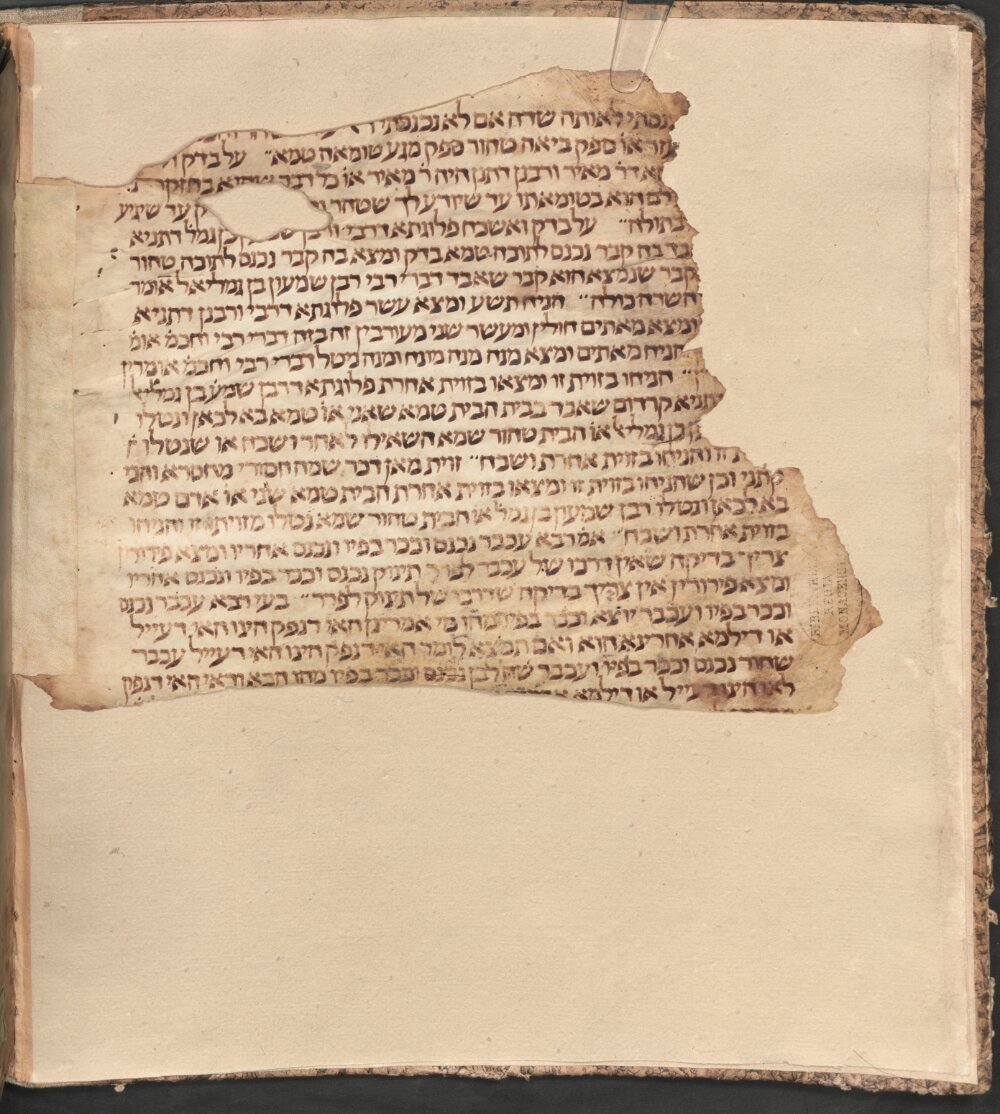 נכנסתי לאותה שדה אם לא נכנסתי
או ספק ביאה טהור ספק מגע טומאה טמא״ על בדק
ר׳ מאיר ורבנן דתנן היה ר׳ מאיר או כל דבר שהוא בחזקת
הוא בטומאתו עד שיודע לך שטהר עד שיגיע
בתולה״ על בדק ואשכח פלוגתא דרבי גמל׳ דתניא
בה קבר נכנס לתוכה טמא בדק ומצא בה קבר נכנס לתוכה טהור
קבר שנמצא הוא קבר שאבד דברי רבי רבן שמעון בן גמליאל אומר
השדה כולה״ הניח תשע ומצא עשר פלוגתא דרבי ורבנן דתניא
ומצא מאתים חולין ומעשר שני מעורבין זה בזה דברי רבי וחכמ׳ אומ׳
הניח מאתים ומצא מנה מנה מונח ומנה ניטל דברי רבי וחכמ׳ אומרין
״ הניחו בזוית זו ומצאו בזוית אחרת פלוגתא דרבן שמע׳ בן גמליא׳
קרדום שאבד בבית הבית טמא שאני או׳ טמא בא לכאן ונטלו
בן גמליא׳ או׳ הבית טהור שמא השאילו לאחר ושכח או שנטלו
זו והניחו בזוית אחרת ושכח״ זוית מאן דכר שמה חסורי מחסרא והכי
קתני וכן שהניחו בזוית זו ומצאו בזוית אחרת הבית טמא שאני או׳ אדם טמא
בא לכאן ונטלו רבן שמעון בן גמל׳ או׳ הבית טהור שמא נטלו מזוית זו והניחו
בזוית אחרת ושכח״ אמ׳ רבא עכבר נכנס וככר בפיו ונכנס אחריו ומצא פירורין
צריך בדיקה שאין דרכו של עכבר לפרר תינוק נכנס וככר בפיו ונכנס אחריו
ומצא פירורין אין צריך בדיקה שדרכו של תינוק לפרר״ בעי רבא עכבר נכנס
וככר בפיו ועכבר יוצא וככר בפיו מהו מי אמרינן האי דנפק הינו האי דעייל
או דילמא אחרינא הוא ואם תמצא לומר האי דנפק הינו האי דעייל עכבר
שחור נכנס וככר בפיו ועכבר לבן נכנס וככר בפיו מהו הבא ודאי האי דנפק
לאו הינו דעייל או דילמא